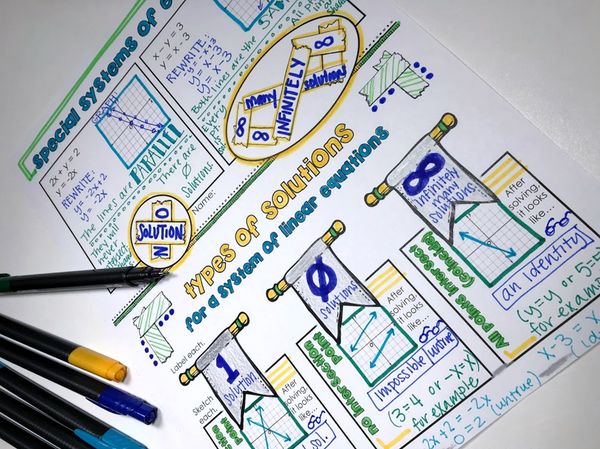 special systems of e
x - y = 3
y = x - 3
REWRITE:
y = x - 3
y = x - 3
Both lines are the SA
Every
∞ MANY ∞
INFINITELY
∞ Solutions
∞
GRAPH:
2x + y = 2
y = -2x
REWRITE:
y = -2x + 2
y = -2x
The lines are PARALLEL
they will
never
There are
∅
solutions
NO
SOLUTION
Name:
types of solutions
for a system of linear equations
Label each.
Sketch
each.
1
solution
point
After
solving,
it looks
like...
sol.
∅
solutions
no intersection
point
After
solving,
it looks
like...
impossible (untrue)
(3=4 or -x=x)
for example
∞
infinitely
many
solutions
All points intersect
(coincide)
After
solving,
it looks
like...
an identity
(y=y or 5=
for exam
x - 3 = x
2x + 2 = -2x
0 = 2 (untrue)